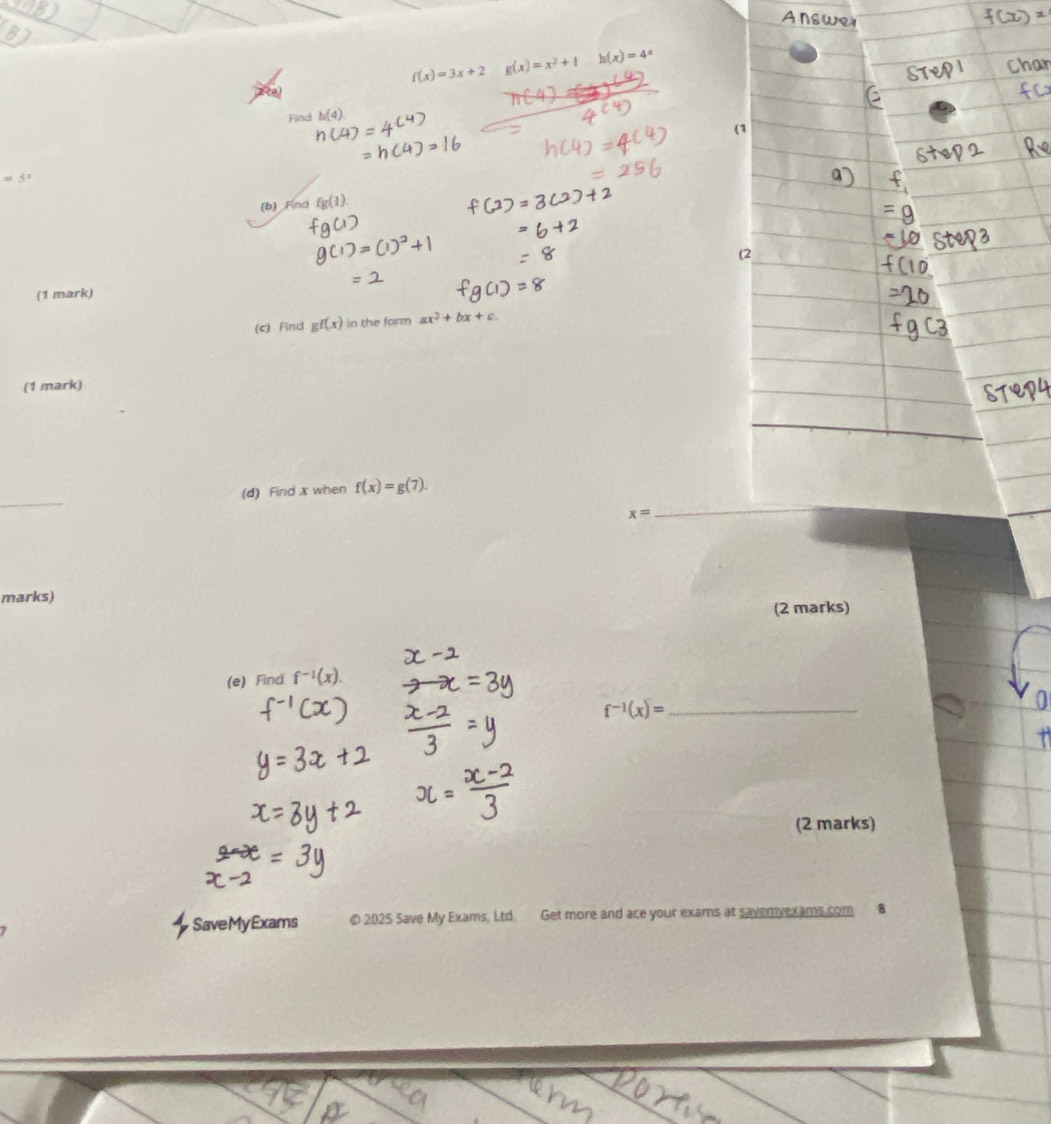 f(x) = 3x + 2 g(x) = x² + 1 h(x) = 4ˣ
Find h(4).
h(4) = 4(4)
= h(4) = 16
4(4)
h(4) = 4(4)
= 256
(b) Find fg(1).
fg(1)
g(1) = (1)² + 1
= 2
f(2) = 3(2) + 2
= 6 + 2
= 8
fg(1) = 8
(c) Find gf(x) in the form ax² + bx + c.
(d) Find x when f(x) = g(7).
x =
(2 marks)
(e) Find f⁻¹(x).
f⁻¹(x)
y = 3x + 2
x = 3y + 2
x - 2 = 3y
x - 2
= 3y
x-2/3 = y
x = x-2/3
f⁻¹(x) =
(2 marks)
SaveMyExams
© 2025 Save My Exams, Ltd.
Get more and ace your exams at savemyexams.com
8
= 5ˣ
(1 mark)
(1 mark)
marks)
(1
(2
Answer
f(x) =
Step1
a)
f
= g
= 10
f(10
= 20
fg(3
Step2
Step3
Step4